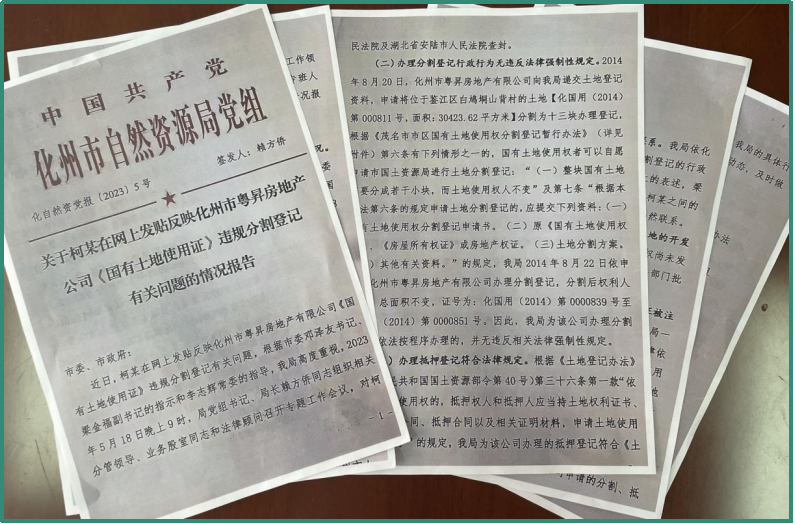 中国共产党
化州市自然资源局党组
化自然资党报〔2023〕5号
签发人：赖方侨
关于柯某在网上发贴反映化州市粤昇房地产
公司《国有土地使用证》违规分割登记
有关问题的情况报告
市委、市政府：
近日，柯某在网上发贴反映化州市粤昇房地产有限公司《国
有土地使用证》违规分割登记有关问题，根据市委邓泽友书记、
梁金福副书记的指示和李志辉常委的指导，我局高度重视，2023
年5月18日晚上9时，局党组书记、局长赖方侨同志组织相关
分管领导、业务股室同志和法律顾问召开专题工作会议，对柯
-1-
工作领
班人
况报
民法院及湖北省安陆市人民法院查封。
（二）办理分割登记行政行为无违反法律强制性规定。2014
年8月20日，化州市粤昇房地产有限公司向我局递交土地登记
资料，申请将位于鉴江区白鸠埇山背村的土地【化国用（2014）
第000811号，面积：30423.62平方米】分割为十三块办理登记，
根据《茂名市市区国有土地使用权分割登记暂行办法》（详见
附件）第六条有下列情形之一的，国有土地使用权者可以自愿
申请市国土资源局进行土地分割登记：“（一）整块国有土地
要分成若干小块，而土地使用权人不变”及第七条“根据本
法第六条的规定申请土地分割登记的，应提交下列资料：（一）
有土地使用权分割登记申请书。（二）原《国有土地使用权
、《房屋所有权证》或房地产权证。（三）土地分割方案。
）其他有关资料。”的规定，我局2014年8月22日依申
化州市粤昇房地产有限公司办理分割登记，分割后权利人
总面积不变，证号为：化国用（2014）第0000839号至
（2014）第0000851号。因此，我局为该公司办理分割
依法按程序办理的，并无违反相关法律强制性规定。
）办理抵押登记符合法律规定。根据《土地登记办法》
共和国国土资源部令第40号）第三十六条第一款“依
使用权的，抵押权人和抵押人应当持土地权利证书、
同、抵押合同以及相关证明材料，申请土地使用
”的规定，我局为该公司办理的抵押登记符合《土
系。我局依化
分割登记的行政
的表述，梁
柯某之间的
然联系。
地的开发
权尚未发
部门批
被注
局一
律依
我局的具体行
动态，及时做
办法
申请的分割、抵